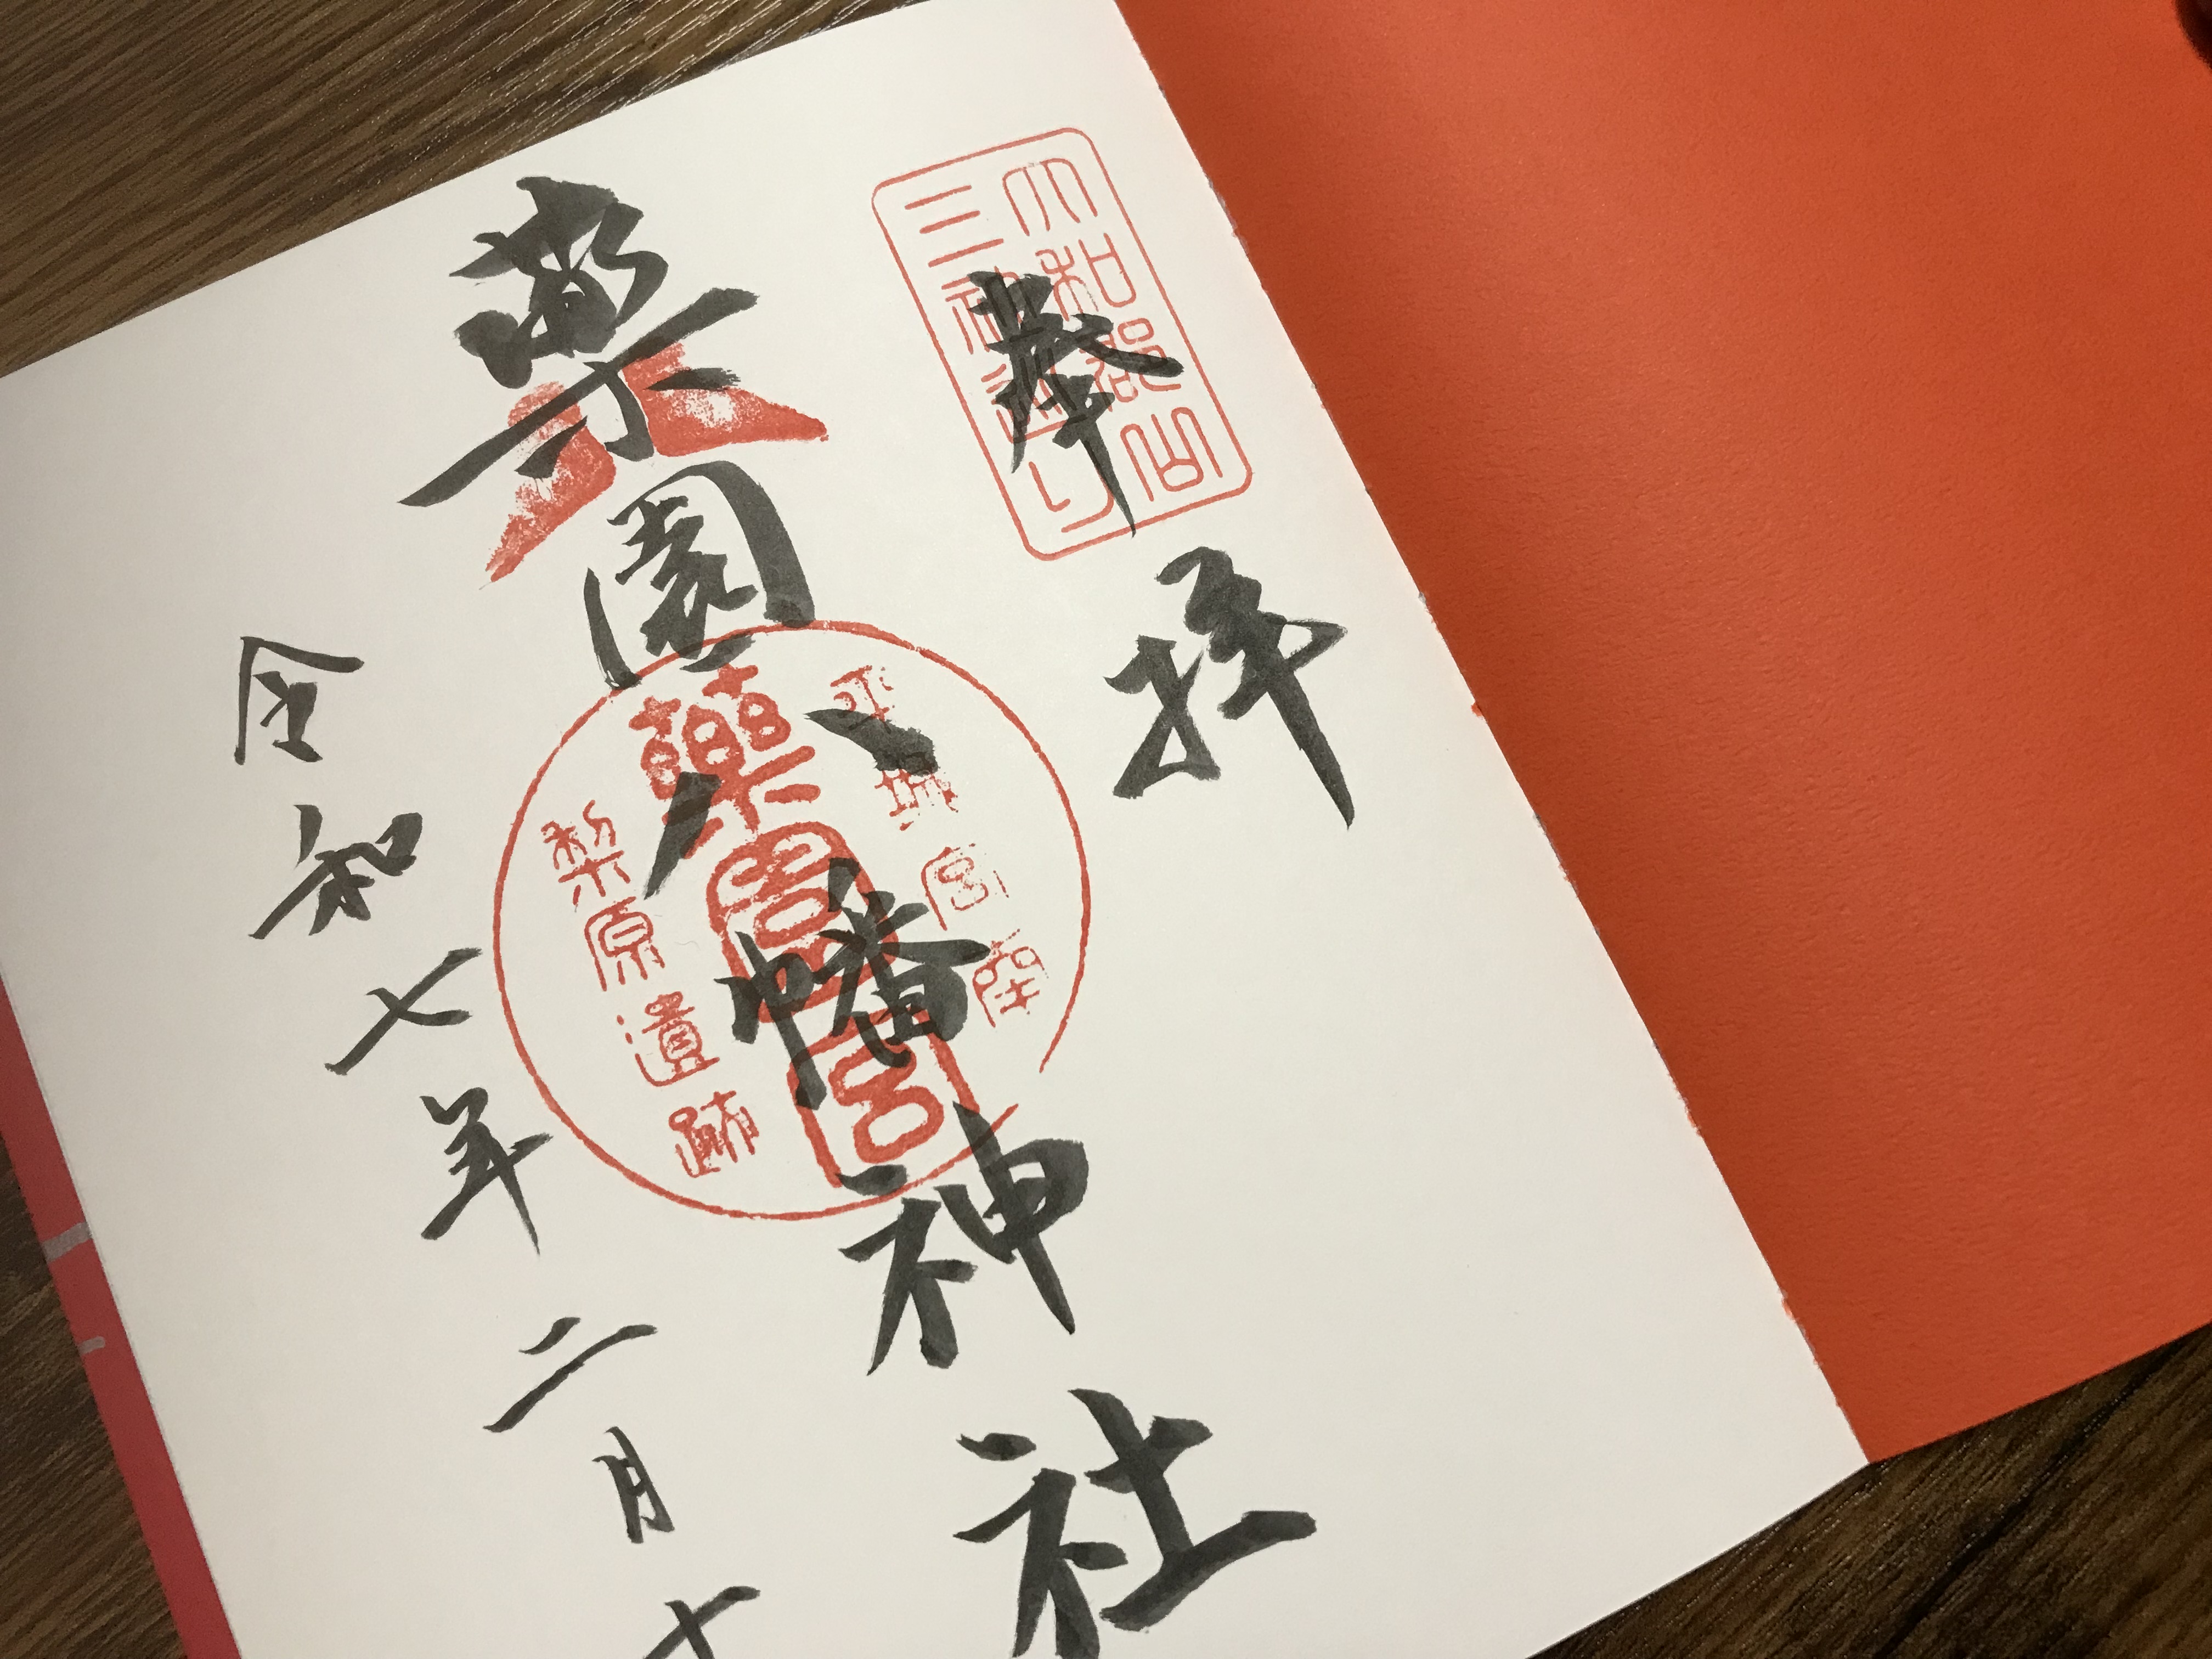 大和郡山
三神巡り
奉拝
薬園八幡神社
平城宮座
藥園宮
梨原遺跡
令和七年二月十